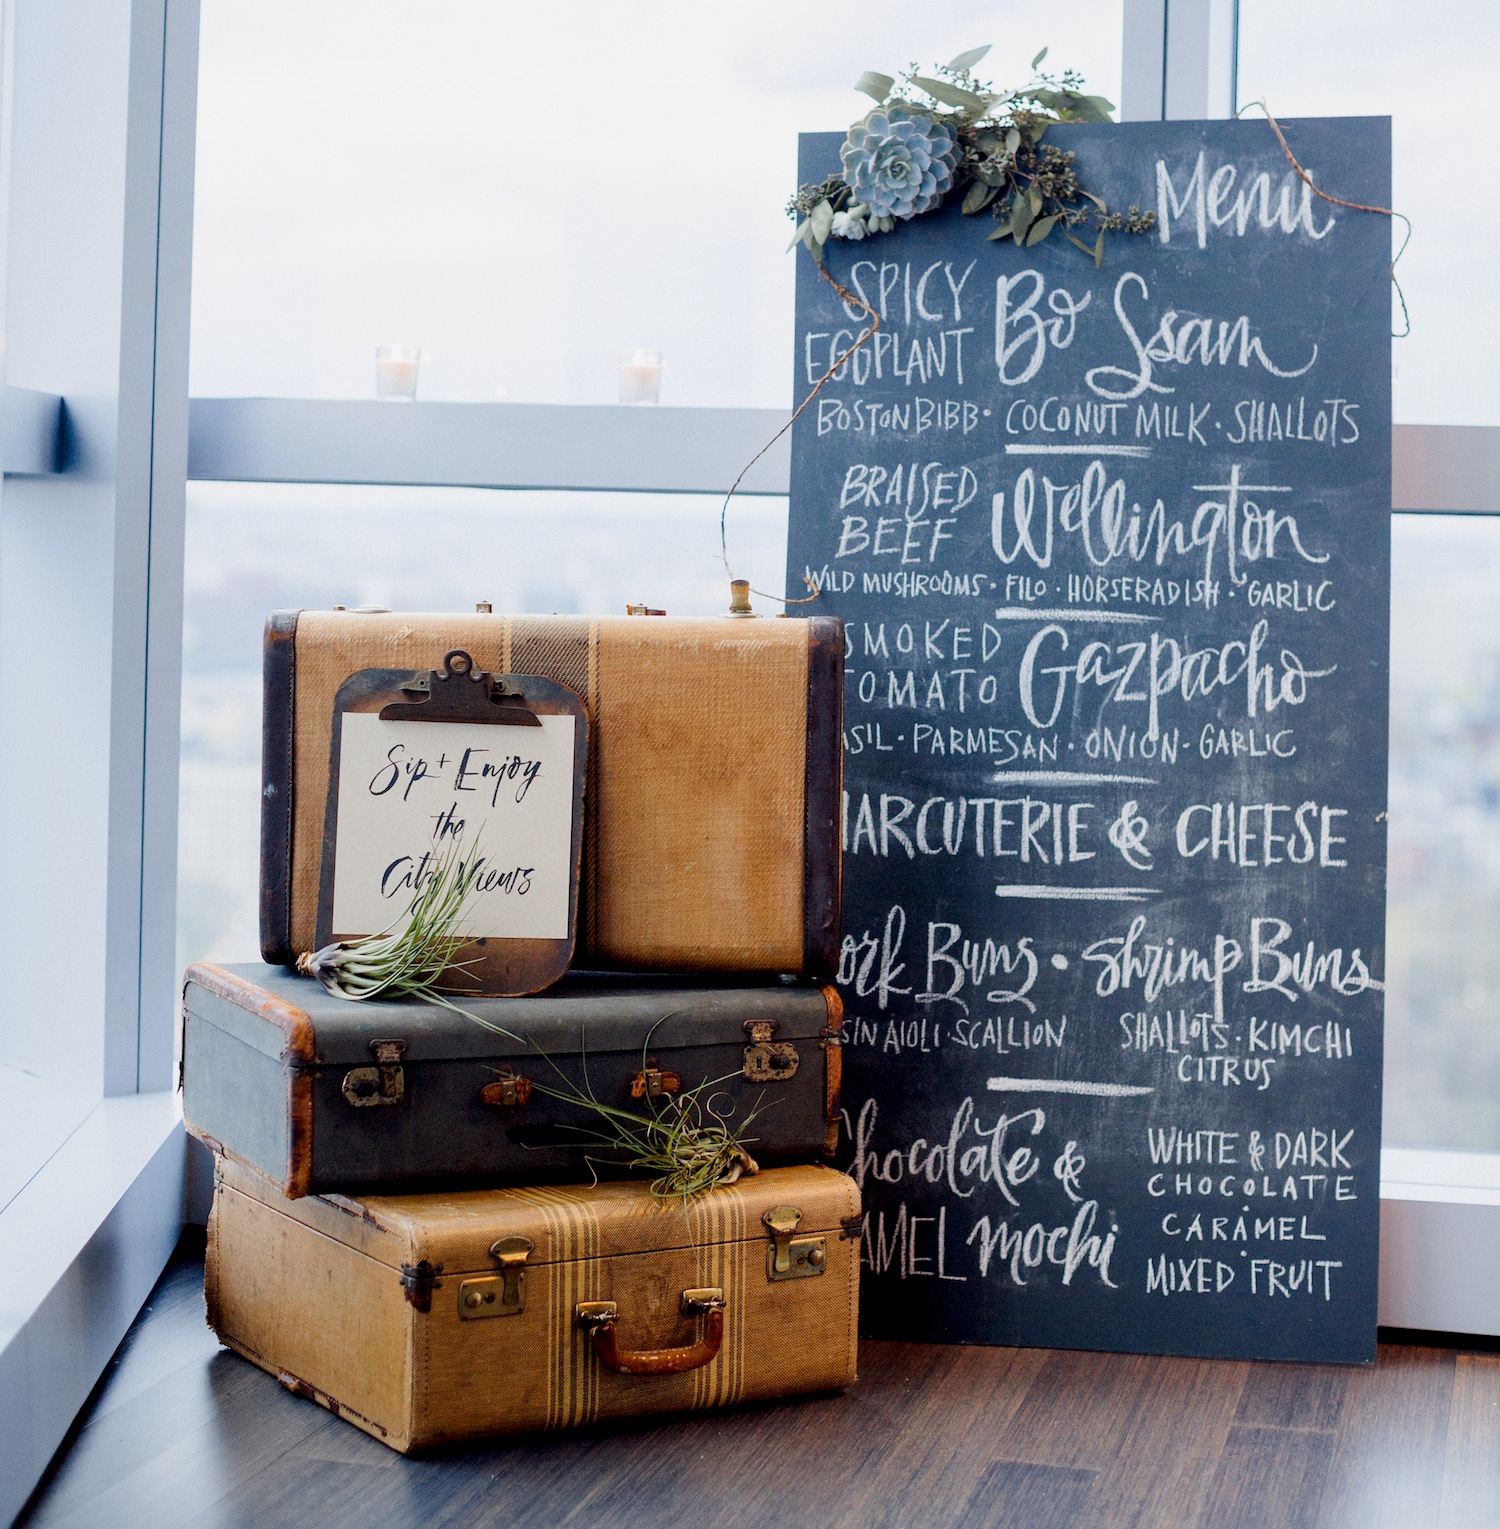 Sip + Enjoy
the
City Views
Menu
SPICY
EGGPLANT Bo Ssam
BOSTON BIBB · COCONUT MILK · SHALLOTS
BRAISED
BEEF Wellington
WILD MUSHROOMS · FILO · HORSERADISH · GARLIC
SMOKED
TOMATO Gazpacho
ASIL · PARMESAN · ONION · GARLIC
HARCUTERIE & CHEESE
ork Buns · Shrimp Buns
SIN AIOLI · SCALLION
SHALLOTS · KIMCHI
CITRUS
Chocolate &
AMEL mochi
WHITE & DARK
CHOCOLATE
·
CARAMEL
·
MIXED FRUIT